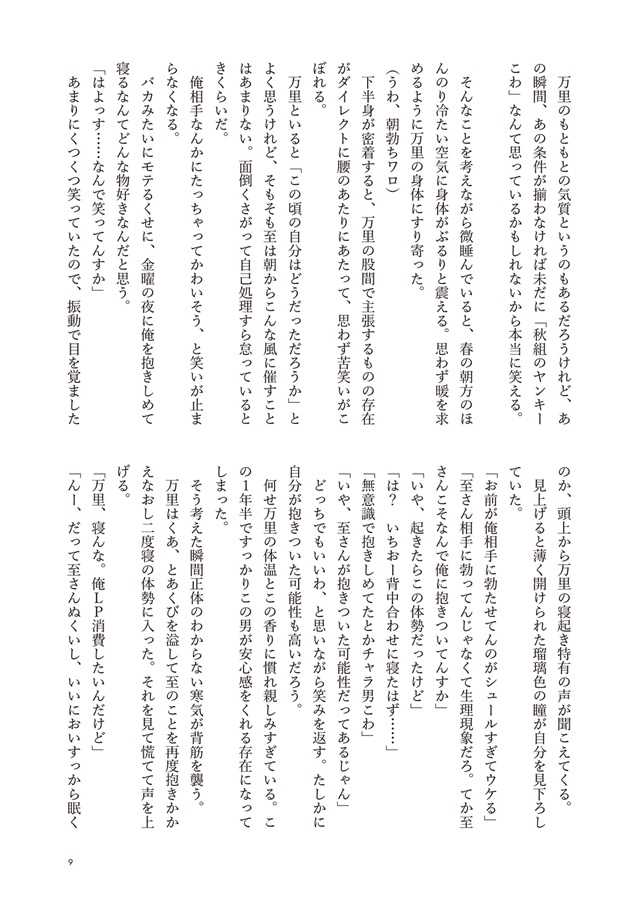 万里のもともとの気質というのもあるだろうけれど、あ
の瞬間、あの条件が揃わなければ未だに「秋組のヤンキー
こわ」なんて思っているかもしれないから本当に笑える。
　そんなことを考えながら微睡んでいると、春の朝方のほ
んのり冷たい空気に身体がぶるりと震える。思わず暖を求
めるように万里の身体にすり寄った。
（うわ、朝勃ちワロ）
　下半身が密着すると、万里の股間で主張するものの存在
がダイレクトに腰のあたりにあたって、思わず苦笑いがこ
ぼれる。
　万里といると「この頃の自分はどうだっただろうか」と
よく思うけれど、そもそも至は朝からこんな風に催すこと
はあまりない。面倒くさがって自己処理すら怠っていると
きくらいだ。
　俺相手なんかにたっちゃってかわいそう、と笑いが止ま
らなくなる。
　バカみたいにモテるくせに、金曜の夜に俺を抱きしめて
寝るなんてどんな物好きなんだと思う。
「はよっす……なんで笑ってんすか」
　あまりにくつくつ笑っていたので、振動で目を覚ました
のか、頭上から万里の寝起き特有の声が聞こえてくる。
　見上げると薄く開けられた瑠璃色の瞳が自分を見下ろし
ていた。
「お前が俺相手に勃たせてんのがシュールすぎてウケる」
「至さん相手に勃ってんじゃなくて生理現象だろ。てか至
さんこそなんで俺に抱きついてんすか」
「いや、起きたらこの体勢だったけど」
「は？　いちおー背中合わせに寝たはず……」
「無意識で抱きしめてたとかチャラ男こわ」
「いや、至さんが抱きついた可能性だってあるじゃん」
　どっちでもいいわ、と思いながら笑みを返す。たしかに
自分が抱きついた可能性も高いだろう。
　何せ万里の体温とこの香りに慣れ親しみすぎている。こ
の１年半ですっかりこの男が安心感をくれる存在になって
しまった。
　そう考えた瞬間正体のわからない寒気が背筋を襲う。
　万里はくあ、とあくびを溢して至のことを再度抱きかか
えなおし二度寝の体勢に入った。それを見て慌てて声を上
げる。
「万里、寝んな。俺ＬＰ消費したいんだけど」
「んー、だって至さんぬくいし、いいにおいすっから眠く
9